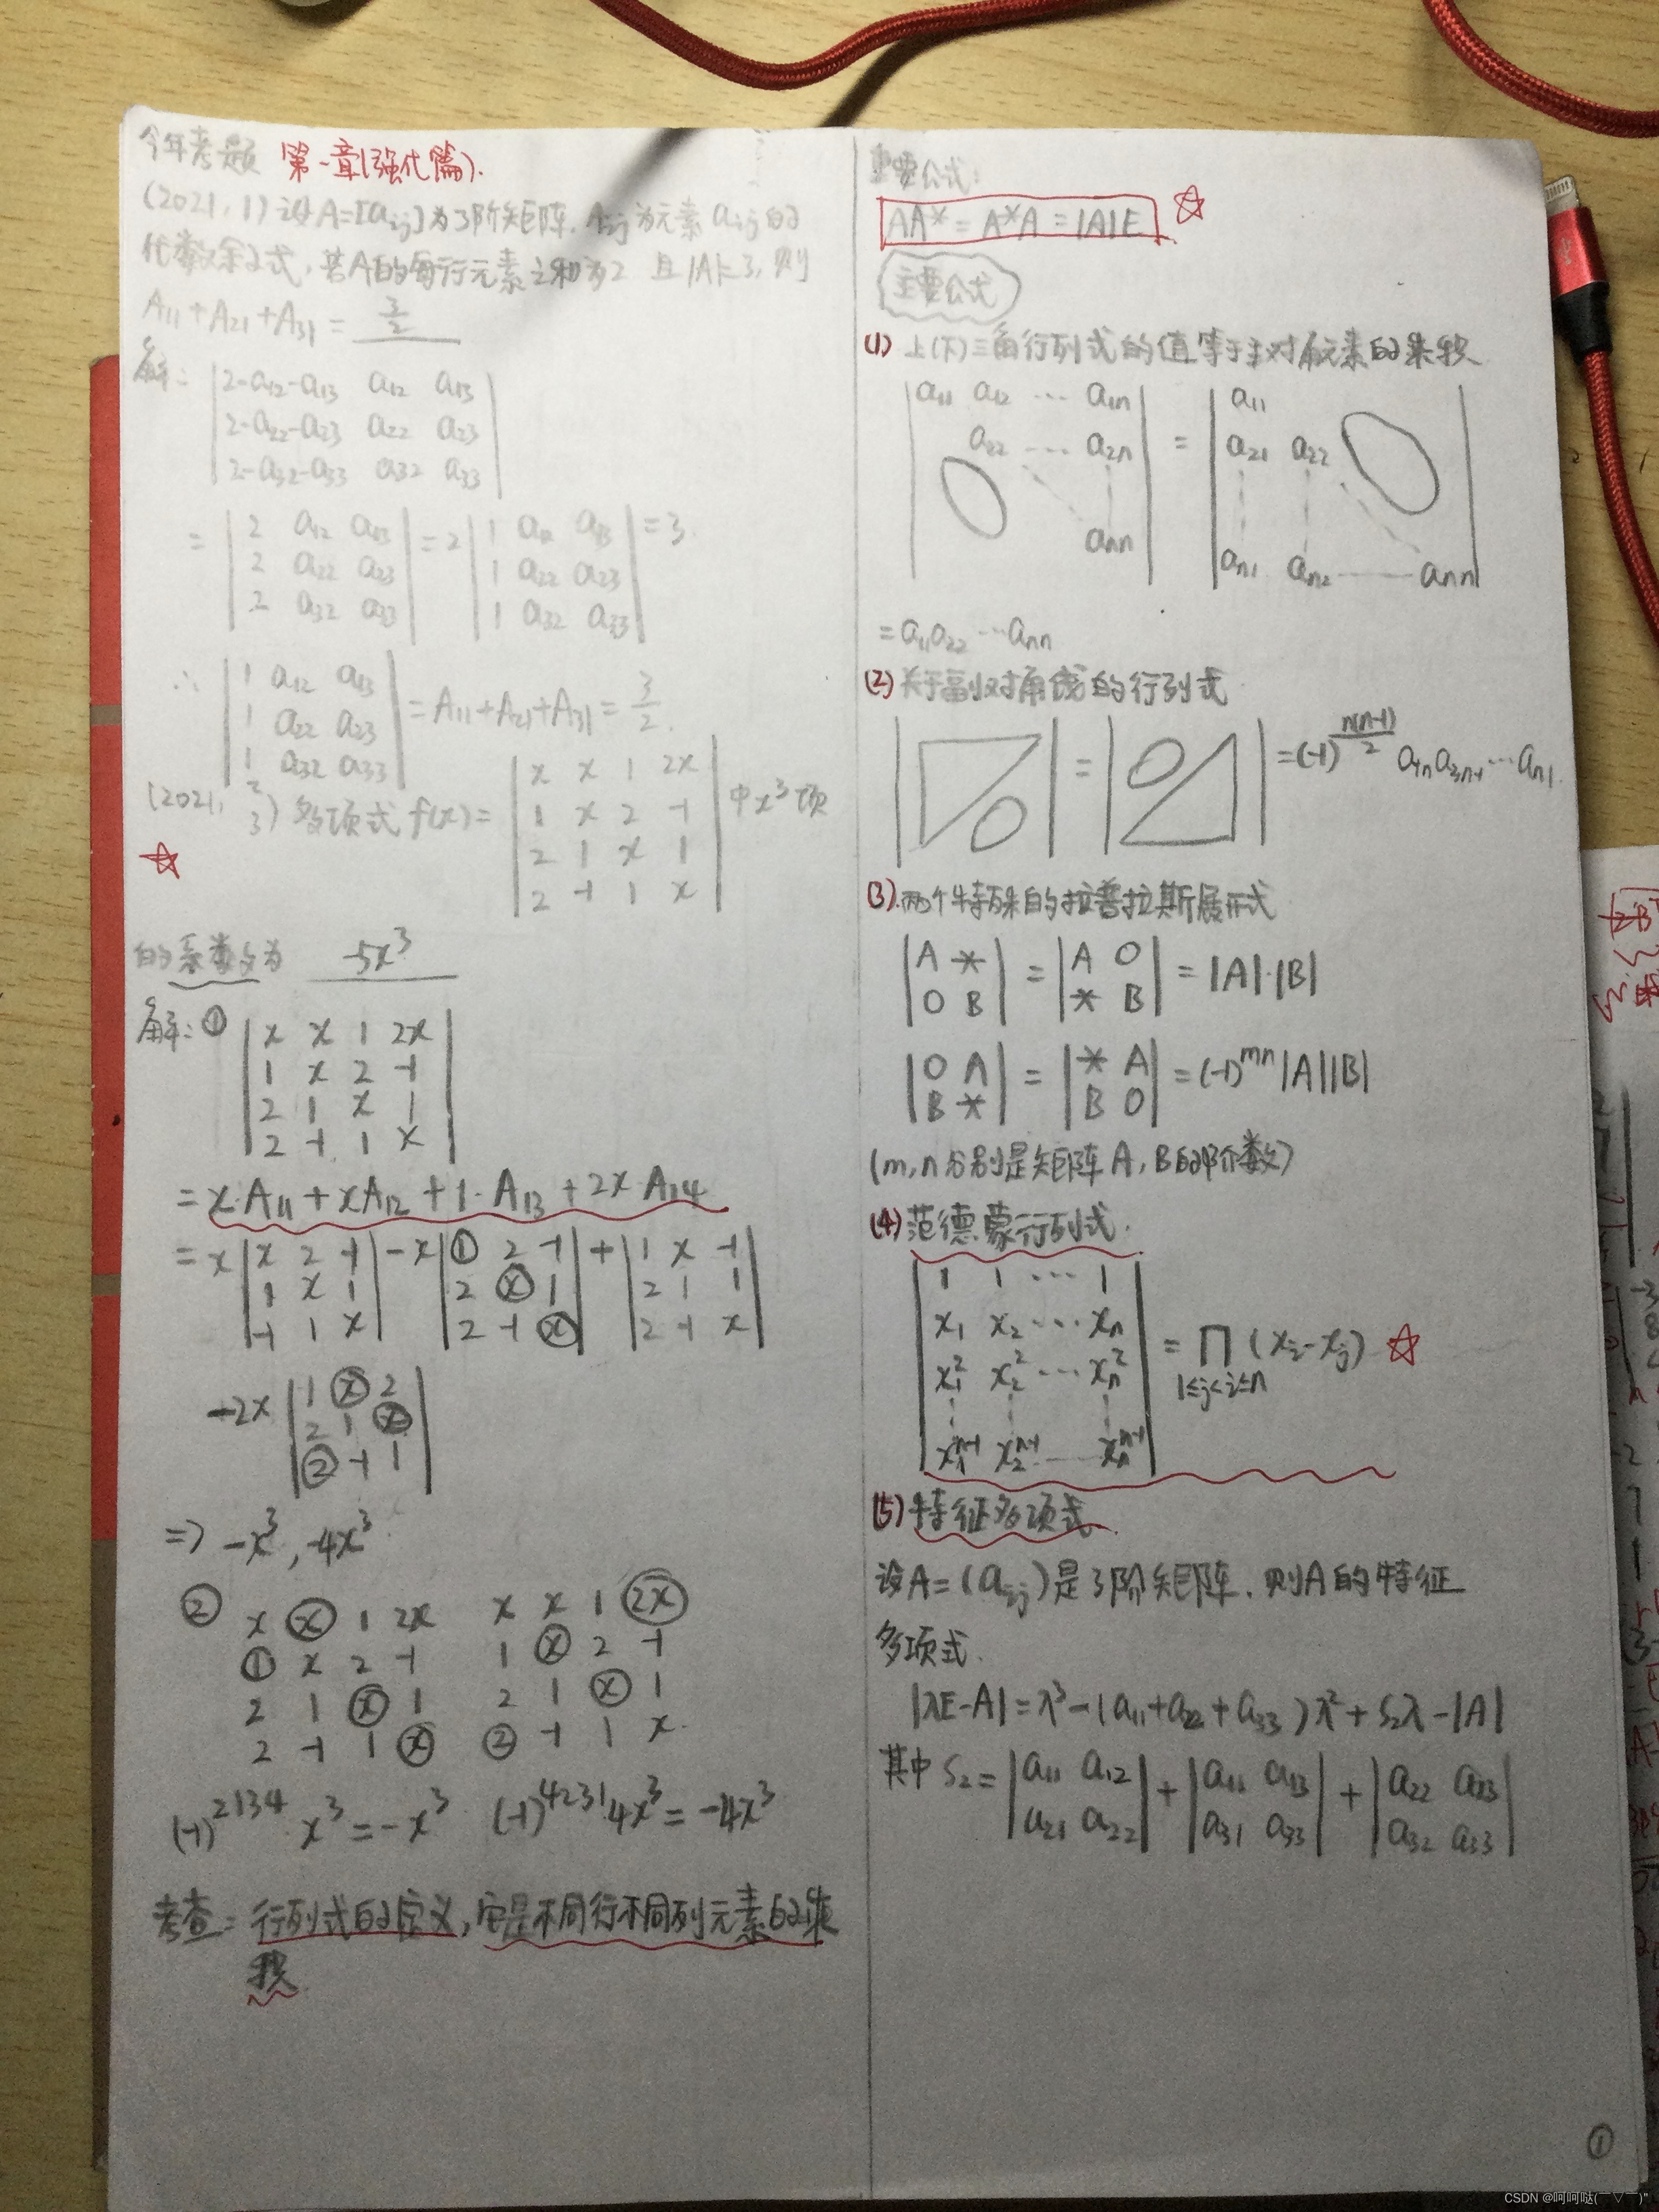 今年考题 第一章(强化篇).
(2021,1) 设A=[aij]为3阶矩阵. Aij为元素aij的
代数余子式, 若A的每行元素之和为2 且|A|=3, 则
A11+A21+A31= 3/2
解: |2-a12-a13 a12 a13|
|2-a22-a23 a22 a23|
|2-a32-a33 a32 a33|
= |2 a12 a13| = 2 |1 a12 a13| = 3.
|2 a22 a23| |1 a22 a23|
|2 a32 a33| |1 a32 a33|
∴ |1 a12 a13| = A11+A21+A31 = 3/2.
|1 a22 a23|
|1 a32 a33|
(2021, 2 3) 多项式 f(x)= |x x 1 2x| 中x³项
|1 x 2 -1|
|2 1 x 1|
|2 -1 1 x|
的系数为 -5x³
解: ① |x x 1 2x|
|1 x 2 -1|
|2 1 x 1|
|2 -1 1 x|
= x·A11 + xA12 + 1·A13 + 2x·A14
= x |x 2 -1| - x |1 2 -1| + |1 x -1|
|1 x 1| |2 x 1| |2 1 1|
|-1 1 x| |2 -1 x| |2 -1 x|
-2x |1 x 2|
|2 1 x|
|2 -1 1|
=> -x³, -4x³
② x x 1 2x x x 1 2x
1 x 2 -1 1 x 2 -1
2 1 x 1 2 1 x 1
2 -1 1 x 2 -1 1 x.
(-1)^2134 x³ = -x³ (-1)^4231 4x³ = -4x³
考查: 行列式的定义, 它是不同行不同列元素的乘
积
重要公式:
AA* = A*A = |A|E
主要公式
(1) 上(下)三角行列式的值等于主对角元素的乘积
|a11 a12 … a1n| = |a11|
|a22 … a2n| |a21 a22|
|ann| |an1 an2 — ann|
= a11a22 … ann
(2) 关于副对角线的行列式
= (-1)^(n(n-1)/2) a1n a2n-1 … an1.
(3). 两个特殊的拉普拉斯展开式
|A *| = |A O| = |A|·|B|
|O B| |* B|
|O A| = |* A| = (-1)^mn |A||B|
|B *| |B O|
(m,n分别是矩阵A, B的阶数)
(4) 范德蒙行列式.
|1 1 … 1|
|x1 x2 … xn| = ∏ (xi-xj)
|x1² x2² … xn²| 1≤j<i≤n
|x1^n-1 x2^n-1 … xn^n-1|
(5) 特征多项式
设A=(aij)是3阶矩阵. 则A的特征
多项式.
|λE-A| = λ³-(a11+a22+a33)λ²+S2λ-|A|
其中 S2= |a11 a12| + |a11 a13| + |a22 a23|
|a21 a22| |a31 a33| |a32 a33|
①
CSDN @呵呵哒(￣▽￣)"